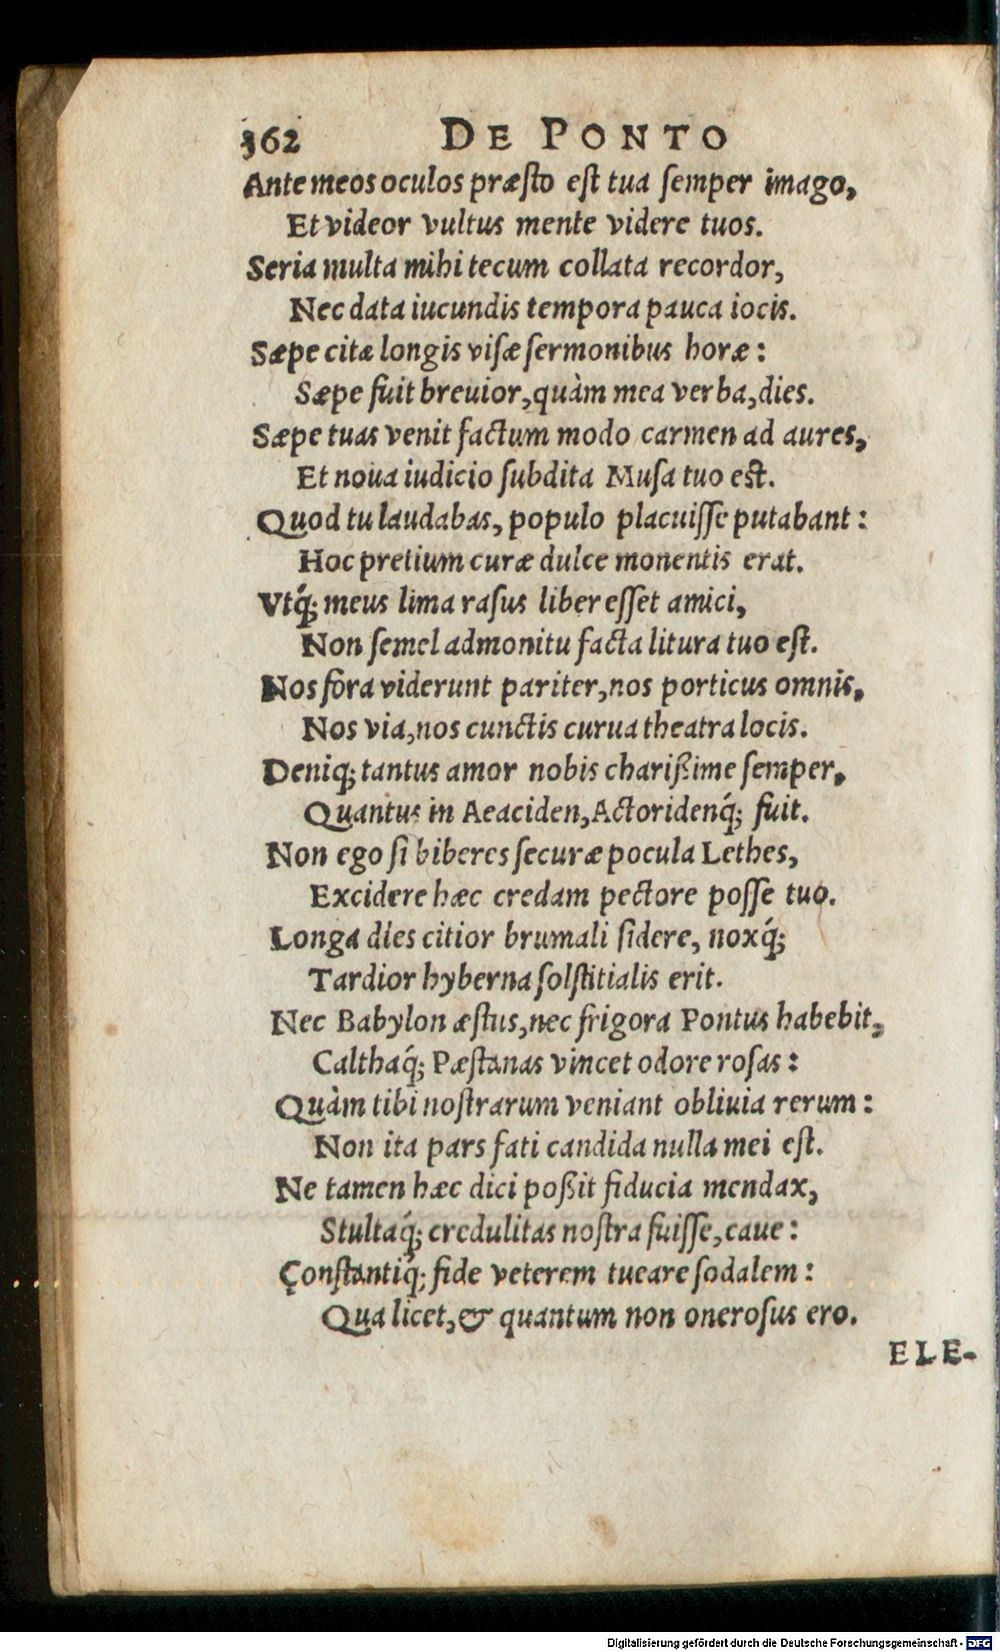 362 DE PONTO
Ante meos oculos præsto est tua semper imago,
Et videor vultus mente videre tuos.
Seria multa mihi tecum collata recordor,
Nec data iucundis tempora pauca iocis.
Sæpe citæ longis visæ sermonibus horæ:
Sæpe fuit breuior, quàm mea verba, dies.
Sæpe tuas venit factum modo carmen ad aures,
Et noua iudicio subdita Musa tuo est.
Quod tu laudabas, populo placuisse putabant:
Hoc pretium curæ dulce monentis erat.
Vtq́; meus lima rasus liber esset amici,
Non semel admonitu facta litura tuo est.
Nos fora viderunt pariter, nos porticus omnis,
Nos via, nos cunctis curua theatra locis.
Deniq; tantus amor nobis charißime semper,
Quantus in Aeaciden, Actoridenq́; fuit.
Non ego si biberes securæ pocula Lethes,
Excidere hæc credam pectore posse tuo.
Longa dies citior brumali sidere, noxq́;
Tardior hyberna solstitialis erit.
Nec Babylon æstus, nec frigora Pontus habebit,
Calthaq́; Pæstanas vincet odore rosas:
Quàm tibi nostrarum veniant obliuia rerum:
Non ita pars fati candida nulla mei est.
Ne tamen hæc dici poßit fiducia mendax,
Stultaq́; credulitas nostra fuisse, caue:
Constantiq́; fide veterem tueare sodalem:
Qua licet, & quantum non onerosus ero.
ELE-
Digitalisierung gefördert durch die Deutsche Forschungsgemeinschaft - DFG